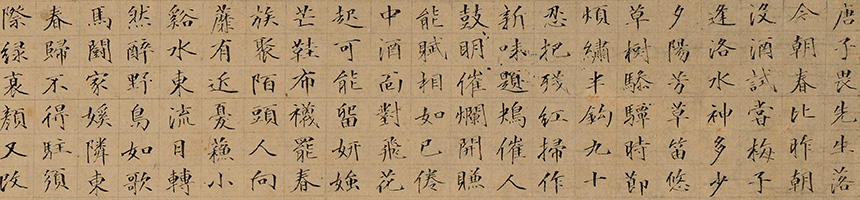 唐子畏先生落
今朝春比昨朝
沒酒試嘗梅子
逢洛水神多少
夕陽芳草笛悠
草樹驂驔時節
煩繡半鈎九十
忍把殘紅掃作
新味題鴆催人
鼓明催爛開賺
能賦相如已倦
中酒尚對飛花
起可能留妍媸
芒鞋布襪罷春
族聚陌頭人向
蘼有近憂龝小
谿水東流日轉
然醉野鳥如歌
馬闘家媛隣東
春歸不得駐須
際綠衰顏又改